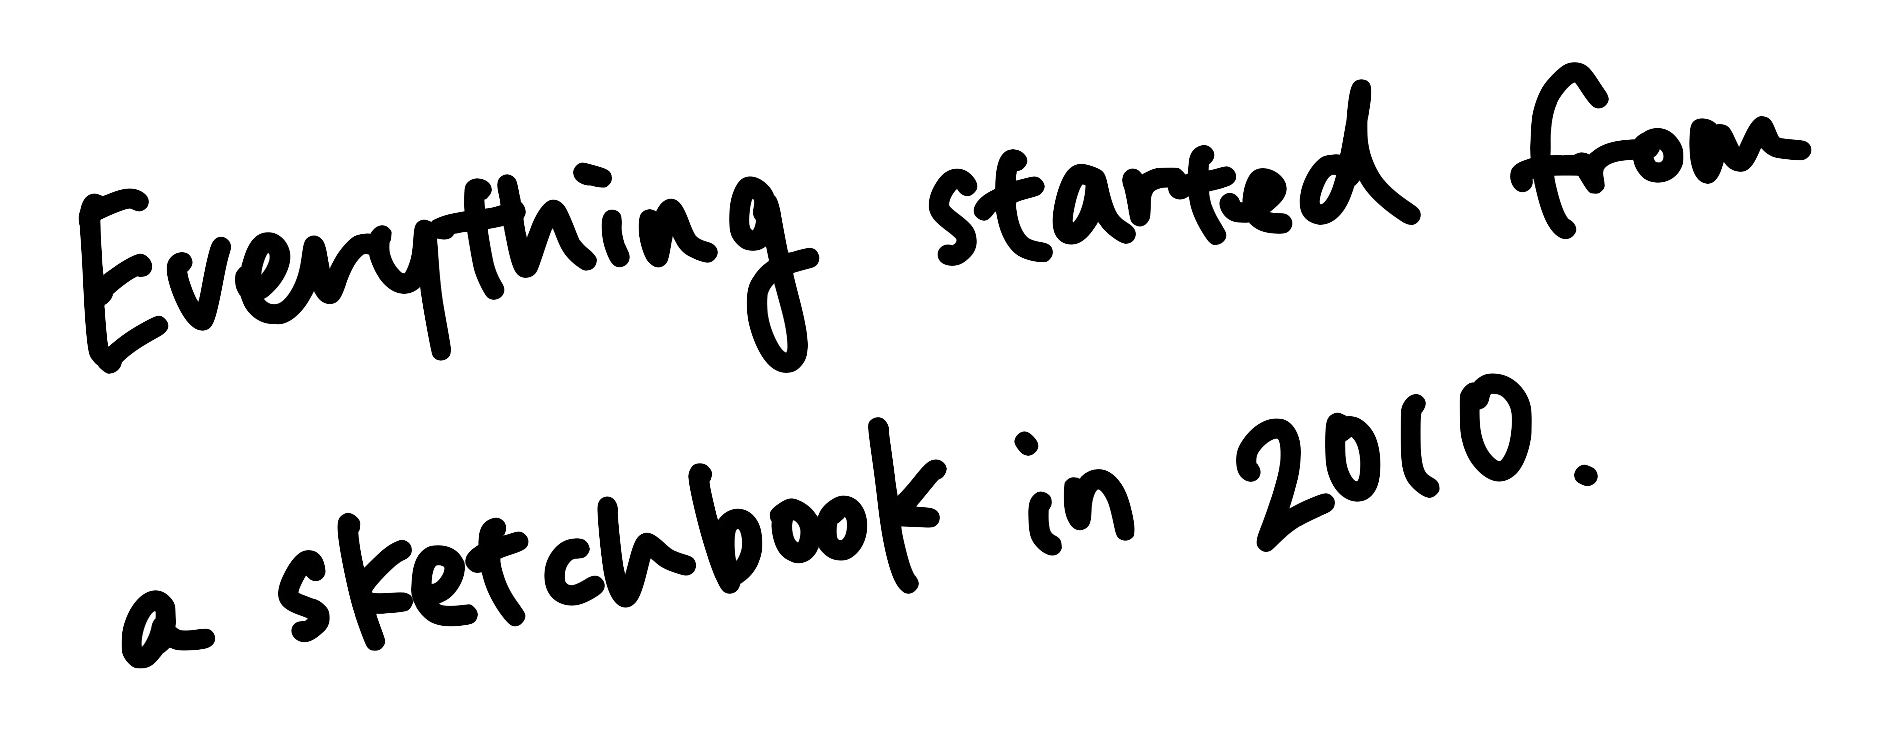 Everything started from
a sketchbook in 2010.